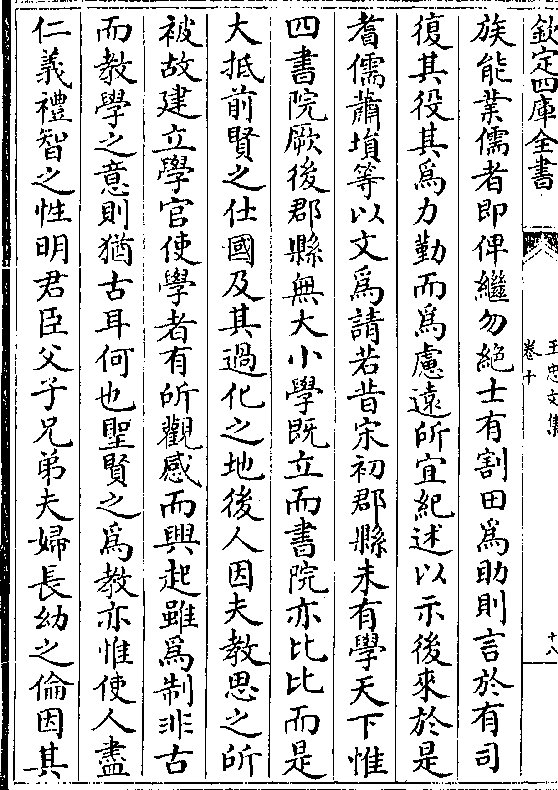 欽定四庫全書
王忠文集
卷十
十八
族能業儒者即俾繼勿絶士有割田爲助則言於有司
復其役其爲力勤而爲慮遠所宜紀述以示後來於是
耆儒蕭塤等以文爲請若昔宋初郡縣未有學天下惟
四書院厥後郡縣無大小學既立而書院亦比比而是
大抵前賢之仕國及其過化之地後人因夫教思之所
被故建立學官使學者有所觀感而興起雖爲制非古
而教學之意則猶古耳何也聖賢之爲教亦惟使人盡
仁義禮智之性明君臣父子兄弟夫婦長幼之倫因其